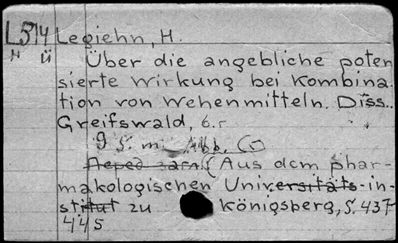 L574 Legiehn, H.
H ü Über die angebliche poten
zierte Wirkung bei Kombina
tion von Wehenmitteln. Diss.
Greifswald, 6.r
9 S. mi Abb.
(Aus dem phar-
makologischen Universitäts-in-
stitut zu Königsberg, S. 437
445